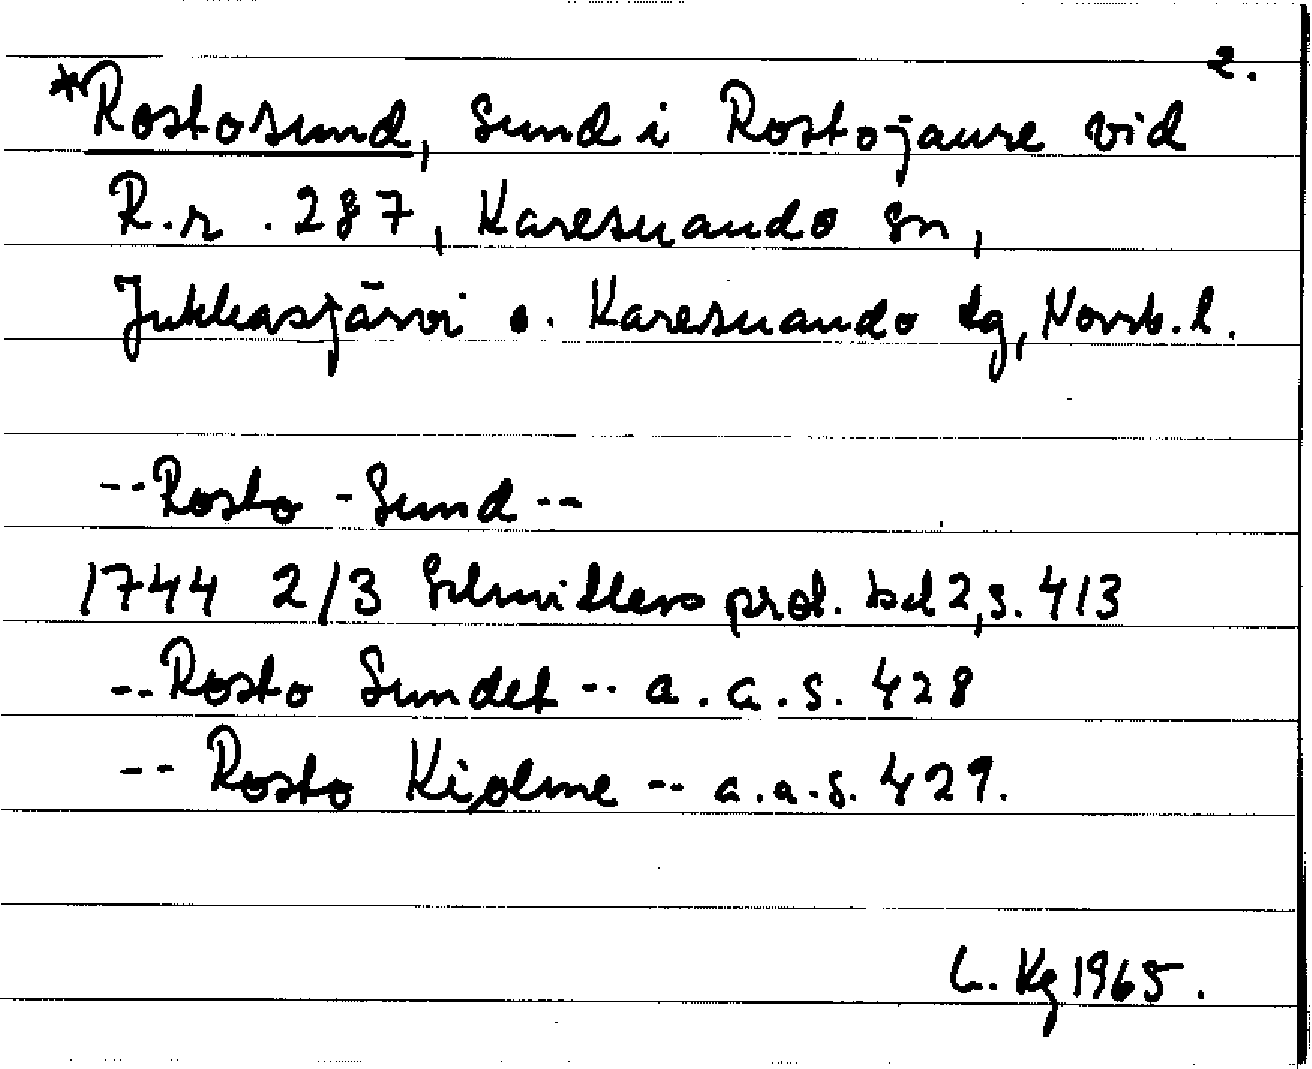 2.
*Rostosund, sund i Rostojaure vid
R.r. 287, Karesuando sn,
Jukkasjärvi o. Karesuando tg, Norrb. l.
-- Rosto - Sund --
1744 2/3 Schnitlers prot. bd 2, s. 413
-- Rosto Sundet -- a. a. s. 428
-- Rosto Kiolme -- a. a. s. 429.
L. Kg 1965.